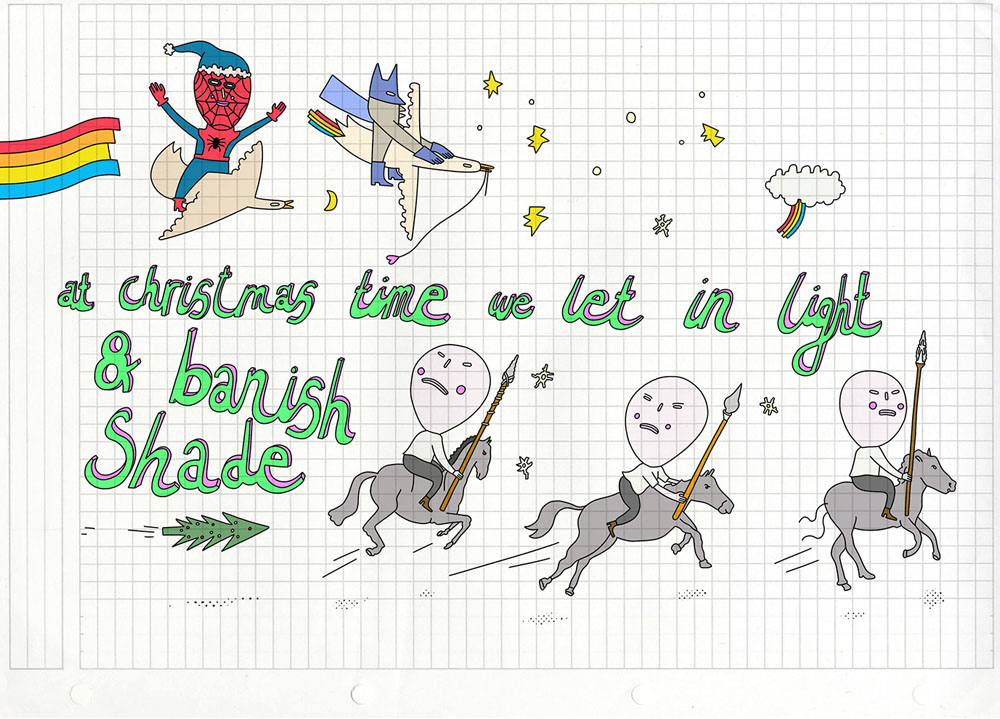 at christmas time we let in light
& banish
Shade